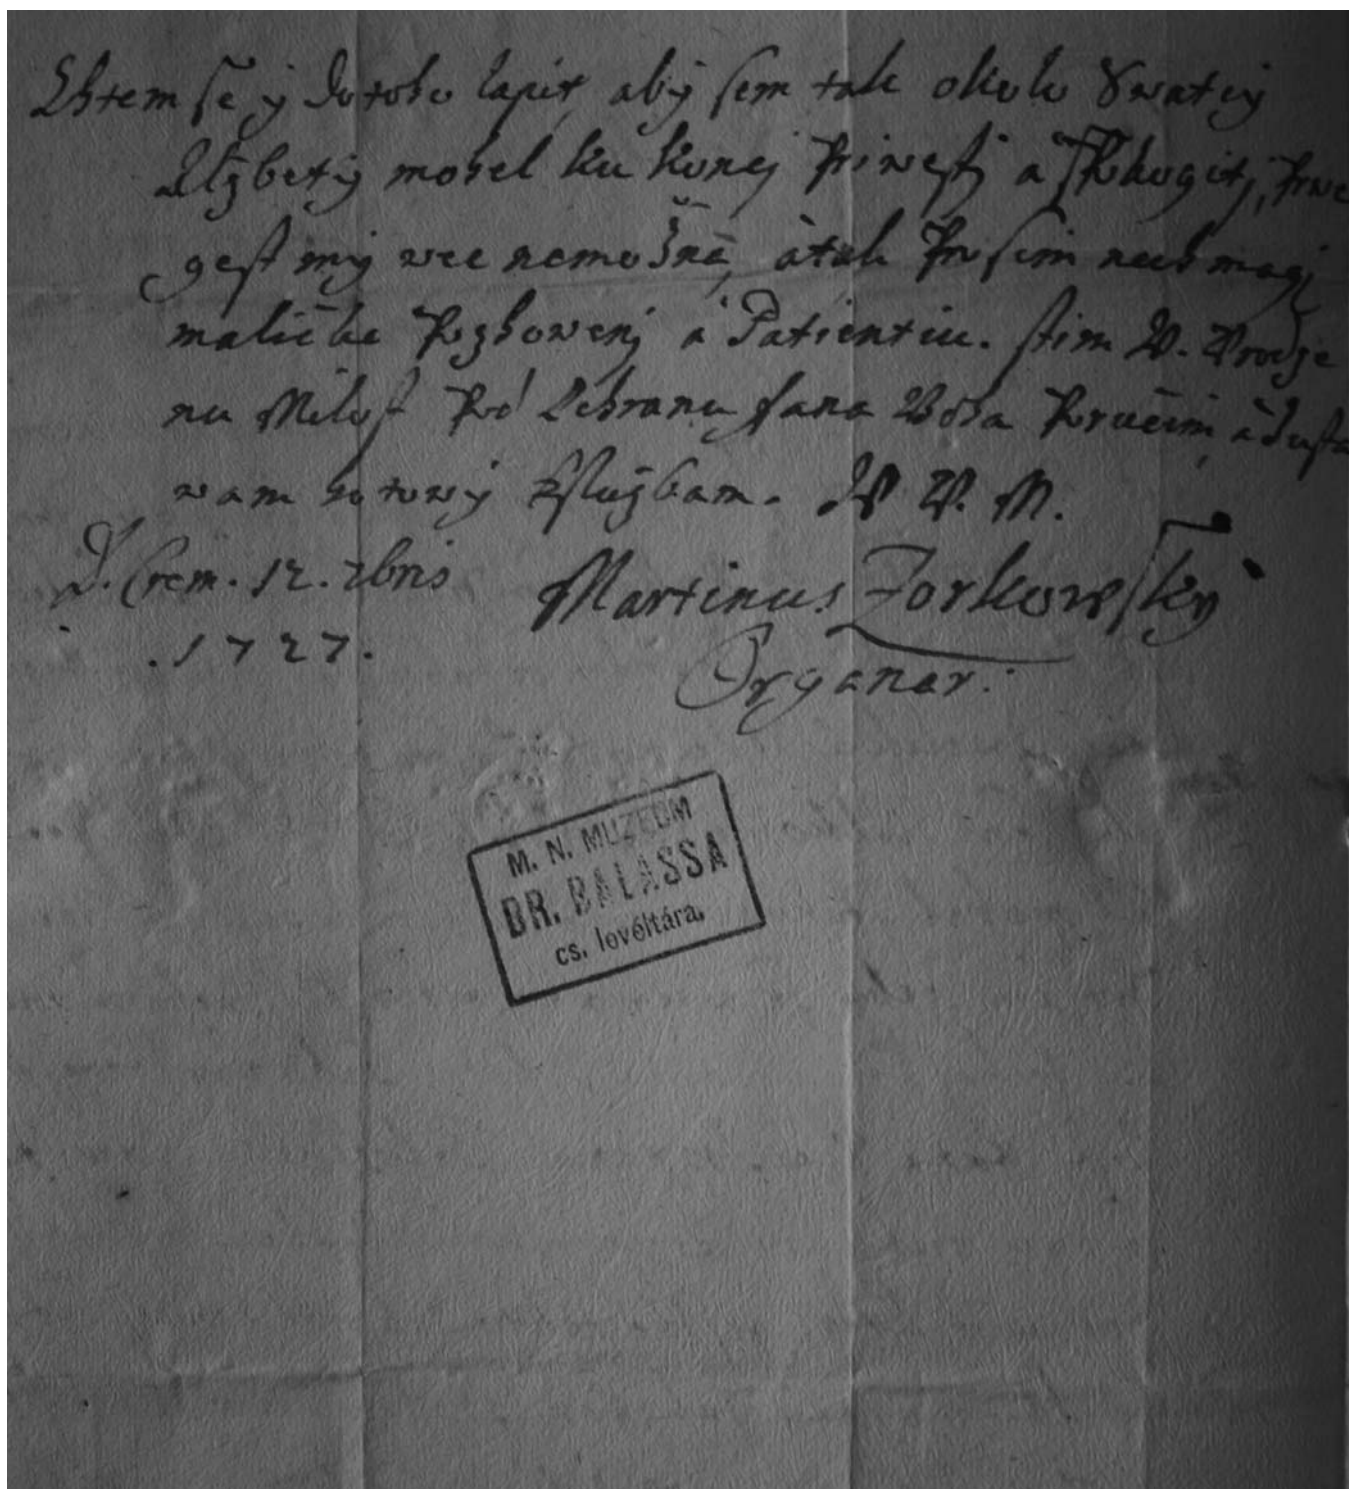 Chtem se y do toho lapit, aby sem tak okolo Swatey
Alzbety mohel ku konej priwesti a spokogiti, prwe
gest my wec nemožna, a tak prosim nech magi
maličke Pozhoweni a Patientiu. stim W. Urodze
nu Milost Pod Ochranu Pana Boha Poručim a zusta
wam hotowy k službam. W. U. M.
D. Crem. 12. 7bris Martinus Zorkowsky
.1727. Organar.
M. N. MUZEUM
DR. BALASSA
cs. levéltára.